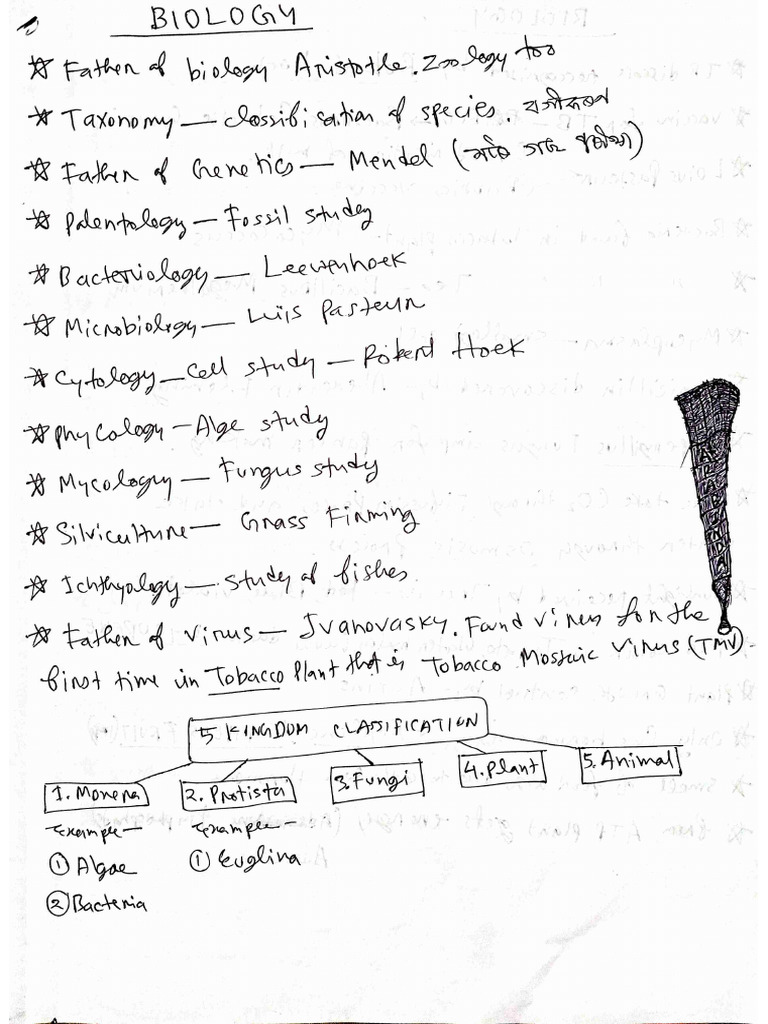 BIOLOGY
☆ Father of biology Aristotle. Zoology too
☆ Taxonomy — classification of species.
☆ Father of Genetics — Mendel
☆ Palentology — Fossil study
☆ Bacteriology — Leewenhoek
☆ Microbiology — Luis Pasteur
☆ Cytology — Cell study — Robert Hoek
☆ Phycology — Alge study
☆ Mycology — Fungus study
☆ Silviculture — Grass Firming
☆ Ichthyology — study of fishes.
☆ Father of virus — Ivanovasky. Found virus for the
first time in Tobacco Plant that is Tobacco Mostaic virus (TMV)
5 KINGDOM CLASSIFICATION
1. Monera 2. Protista 3. Fungi 4. Plant 5. Animal
Example — Example —
① Algae ① Euglina
② Bacteria